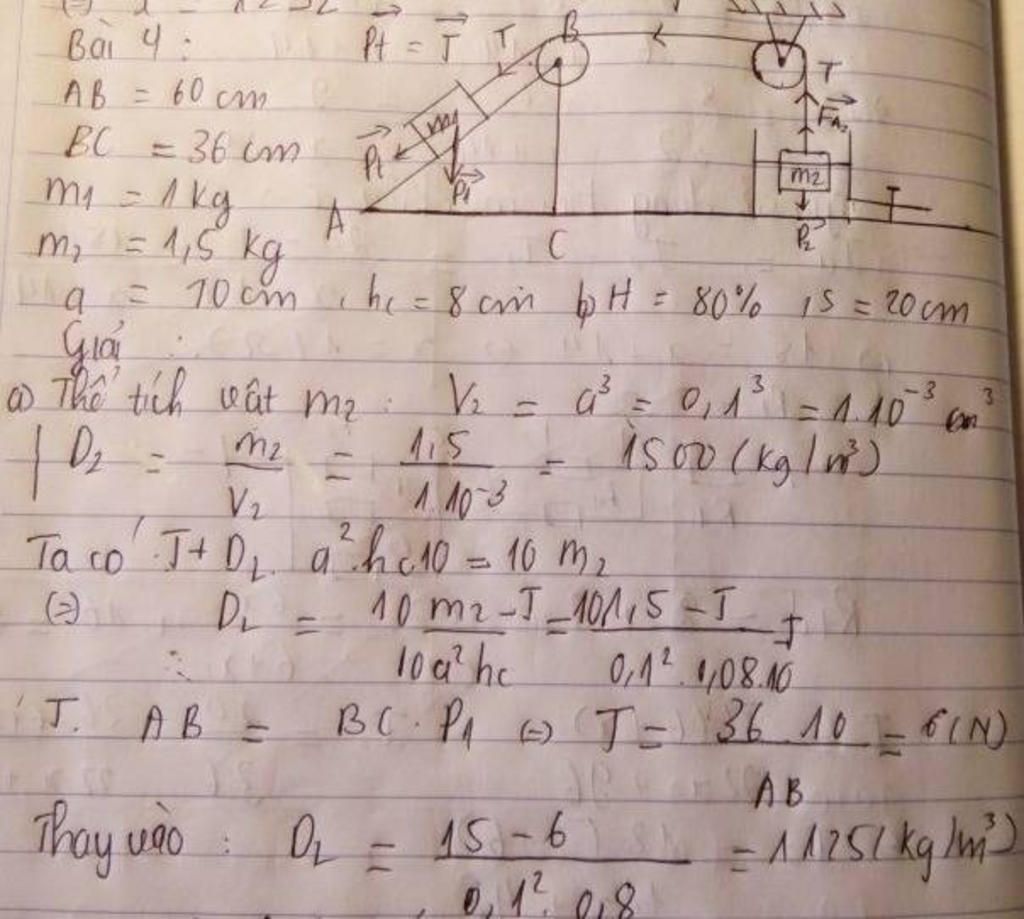 Bài 4 :
P⃗t = T⃗
T
B
AB = 60 cm
BC = 36 cm
m1 = 1 kg
m2 = 1,5 kg
m1
P⃗t
P⃗1
A
C
T
F⃗A2
m2
P⃗2
a = 10cm , hc = 8 cm b) H = 80% , S = 20 cm
Giải :
a) Thể tích vật m2 : V2 = a³ = 0,1³ = 1.10⁻³ cm³
D2 = m2/V2 = 1,5/1.10⁻³ = 1500 (kg/m³)
Ta có : T + DL. a².hc10 = 10 m2
(=) DL = 10 m2 - T/10a²hc = 101,5 - T/0,1².0,08.10
T. AB = BC. P1 (=) T = 36 10/AB = 6(N)
Thay vào : DL = 15 - 6/0,1². 0,8 = 1125 (kg/m³)